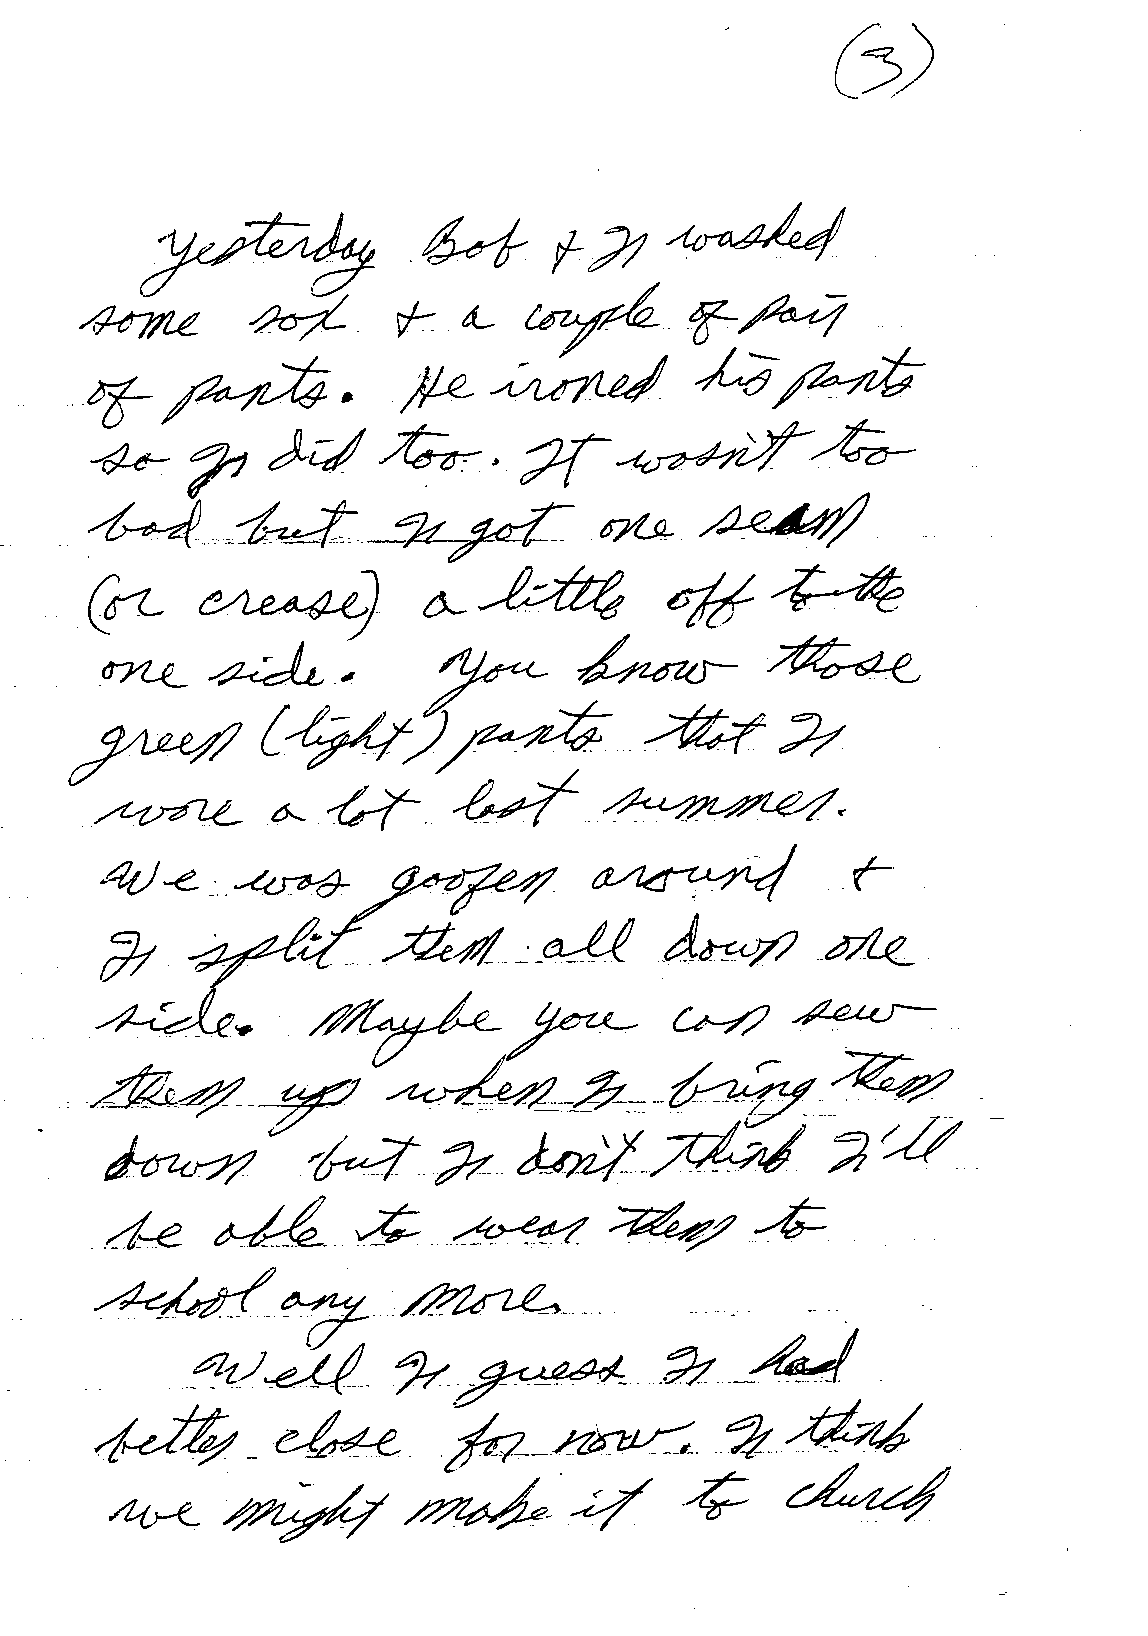 (3)
Yesterday Bob + I washed
some sox + a couple of pair
of pants. He ironed his pants
so I did too. It wasn't too
bad but I got one seam
(or crease) a little off to the
one side. You know those
green (light) pants that I
wore a lot last summer.
We was goofen around +
I split them all down one
side. Maybe you can sew
them up when I bring them
down but I don't think I'll
be able to wear them to
school any more.
Well I guess I had
better close for now. I think
we might make it to church